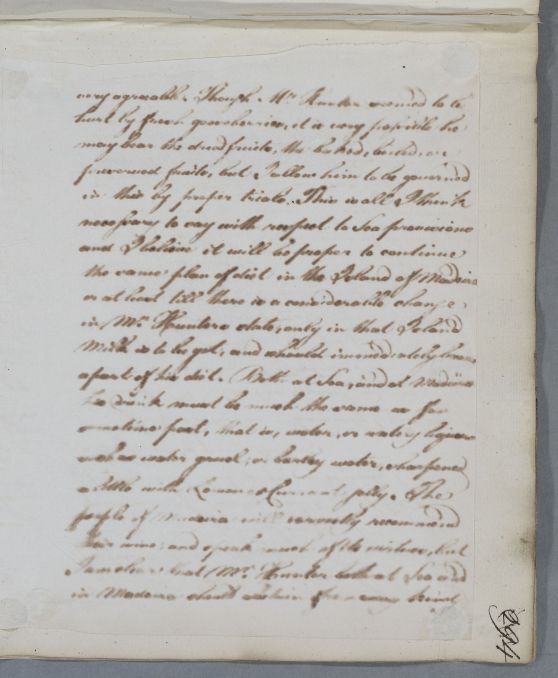 very agreeable. Though Mr. Hunter seemed to be
hurt by fresh gooseberries, it is very possible he
may bear the dried fruits, the baked, boiled, or
preserved fruits, but I allow him to be governed
in this by proper trials. This is all I think
necessary to say with respect to Sea provisions
and I believe it will be proper to continue
the same plan of diet in the Island of Madeira
or at least till there is a considerable change
in Mr. Hunters state, only in that Island
Milk is to be got, and should immediately become
a part of his diet. Both at Sea, and at Madeira
his drink must be much the same as for
sometime past, that is, water, or watery liquors
such as water gruel, or barley water, sharpened
a little with Lemon or Currant jelly. The
people of Madeira will earnestly recommend
their wine, and speak much of its virtues, but
I am clear that Mr. Hunter both at Sea and
in Madeira should abstain from every kind
294